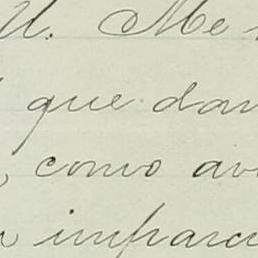 U. Me
que dan
como av
imparci